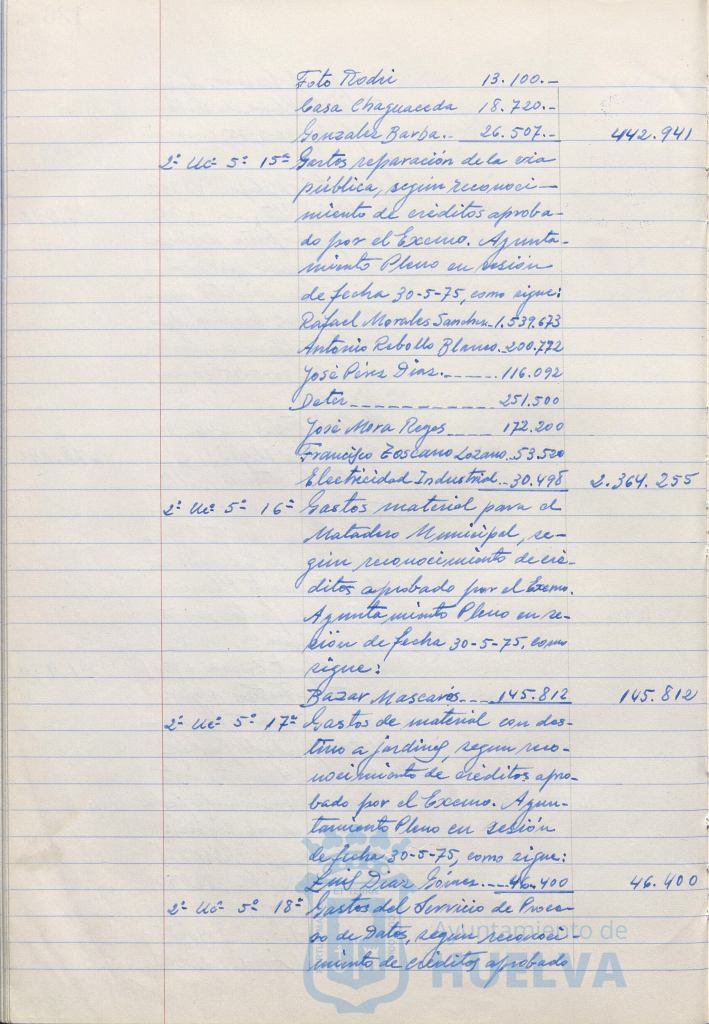 Foto Rodri 13.100.-
Casa Chaguaceda 18.720.-
Gonzalez Barba.- 26.507.- 442.941
2ª Uª 5ª 15ª Gastos reparación de la via
pública, según reconoci-
miento de créditos aproba-
do por el Excmo. Ayunta-
miento Pleno en sesión
de fecha 30-5-75, como sigue:
Rafael Morales Sanchez 1.539.673
Antonio Rebollo Blanco. 200.772
José Pérez Diaz.---- 116.092
Deter---------- 251.500
José Mora Reyes---- 172.200
Francisco Toscano Lozano. 53.520
Electricidad Industrial.. 30.498 2.364.255
2ª Uª 5ª 16ª Gastos material para el
Matadero Municipal, se-
gún reconocimiento de cré-
ditos aprobado por el Excmo.
Ayuntamiento Pleno en se-
sión de fecha 30-5-75, como
sigue:
Bazar Mascarós.--- 145.812 145.812
2ª Uª 5ª 17ª Gastos de material con des-
tino a jardines, según reco-
nocimiento de créditos apro-
bado por el Excmo. Ayun-
tamiento Pleno en sesión
de fecha 30-5-75, como sigue:
Luis Diaz Gómez.--- 46.400 46.400
2ª Uª 5ª 18ª Gastos del Servicio de Proce-
so de Datos, según reconoci-
miento de créditos aprobado
Ayuntamiento de
HUELVA